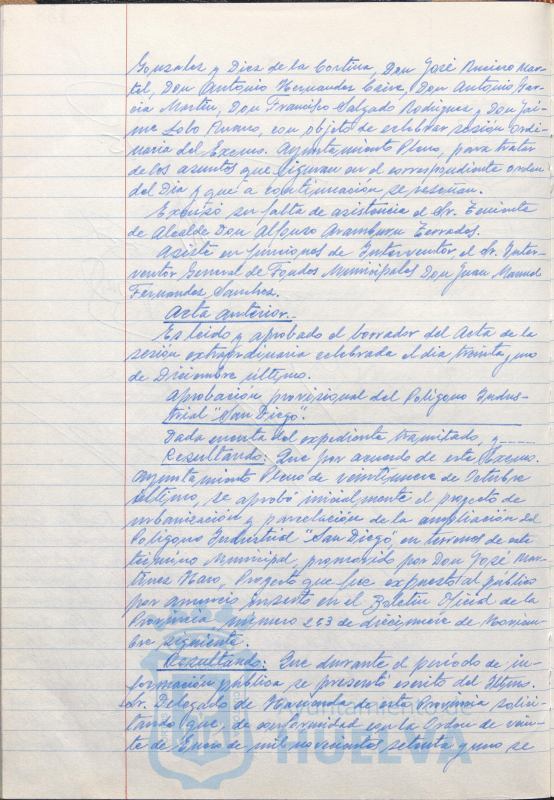 Gonzalez y Diez de la Cortina, Don José Ruciero Mar-
til, Don Antonio Hernandez Ceive, Don Antonio Gar-
cia Martin, Don Francisco Salgado Rodriguez y Don Jai-
me Lobo, con objeto de celebrar sesión ordi-
naria del Excmo. Ayuntamiento Pleno, para tratar
de los asuntos que figuran en el correspondiente orden
del Dia y que a continuación se reseñan.
Excusó su falta de asistencia el Sr. Teniente
de Alcalde Don Alfonso Aramburu Terrades.
Asiste en funciones de Interventor, el Sr. Inter-
ventor General de Fondos Municipales Don Juan Manuel
Fernandez Sanchez.
Acta anterior.-
Es leido y aprobado el borrador del Acta de la
sesión extraordinaria celebrada el dia treinta y uno
de Diciembre último.
Aprobación provisional del Polígono Indus-
trial "San Diego".
Dada cuenta del expediente tramitado, y-----
Resultando: Que por acuerdo de este Excmo.
Ayuntamiento Pleno de veintinueve de Octubre
último, se aprobó inicialmente el proyecto de
urbanización y parcelación de la ampliación del
Polígono Industrial "San Diego", en terrenos de este
término Municipal, promovido por Don José Mar-
tinez Haro, Proyecto que fue expuesto al público
por anuncio inserto en el Boletin Oficial de la
Provincia número 263 de diecinueve de Noviem-
bre siguiente.
Resultando: Que durante el período de in-
formación pública se presentó escrito del Iltmo.
Sr. Delegado de Hacienda de esta Provincia solici-
tando que, de conformidad con la Orden de vein-
te de Enero de mil novecientos setenta y uno se
HUELVA